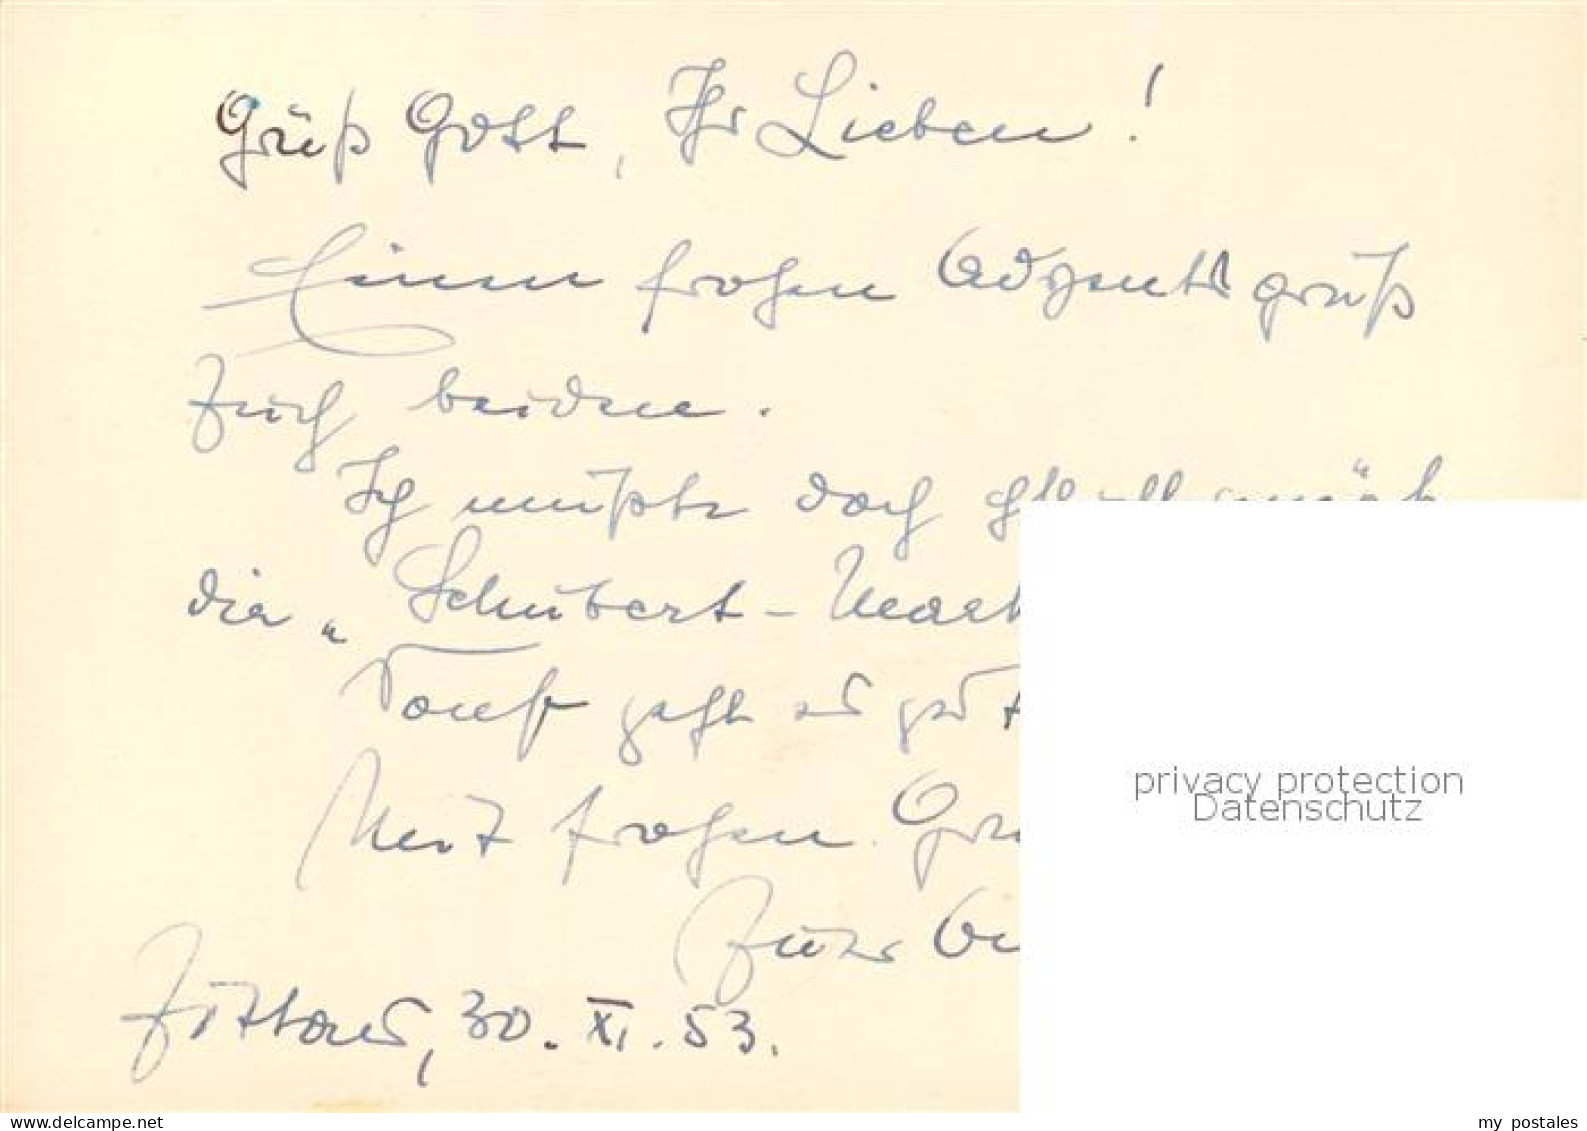 Grüß Gott, Ihr Lieben!
Einen frohen Adventsgruß
Euch beiden.
Ich mußte doch
die „Schubert-
Sonst geht es gut
Mit frohen
Eure
Zittau, 30. XI. 53.
privacy protection
Datenschutz
www.delcampe.net
my postales